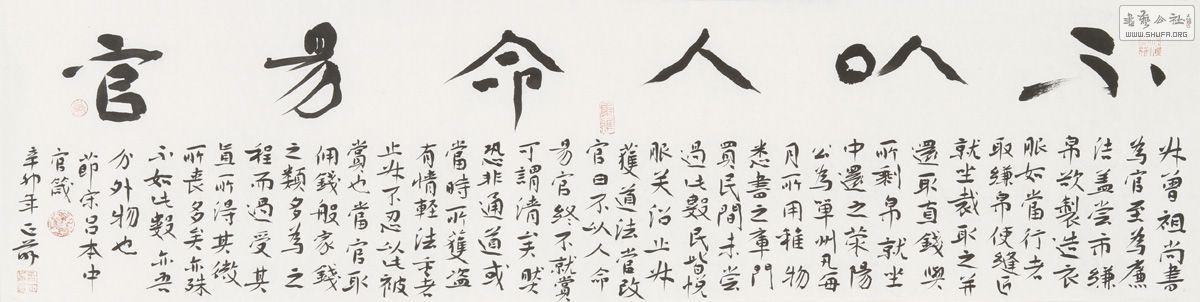 不以人命易官
叔曾祖尚書
為官至為廉
洁盖尝市縑
帛欲製造衣
服如當行者
取縑帛使縫匠
就坐裁取之并
還取直錢與
所剩帛就坐
中還之荥陽
公為單州凡每
月所用雜物
悉書之庫門
買民間未尝
過此數民皆悦
服关沼止叔
獲盗法當改
官曰不以人命
易官终不就賞
可謂清矣然
恐非通道或
當時所獲盗
有情輕法重者
止叔不忍以此被
賞也當官取
佣錢般家錢
之類多為之
程而過受其
直所得甚微
所喪多矣亦殊
不知此數亦吾
分外物也
節宋吕本中
官箴
辛卯年
書藝公社
WWW.SHUFA.ORG